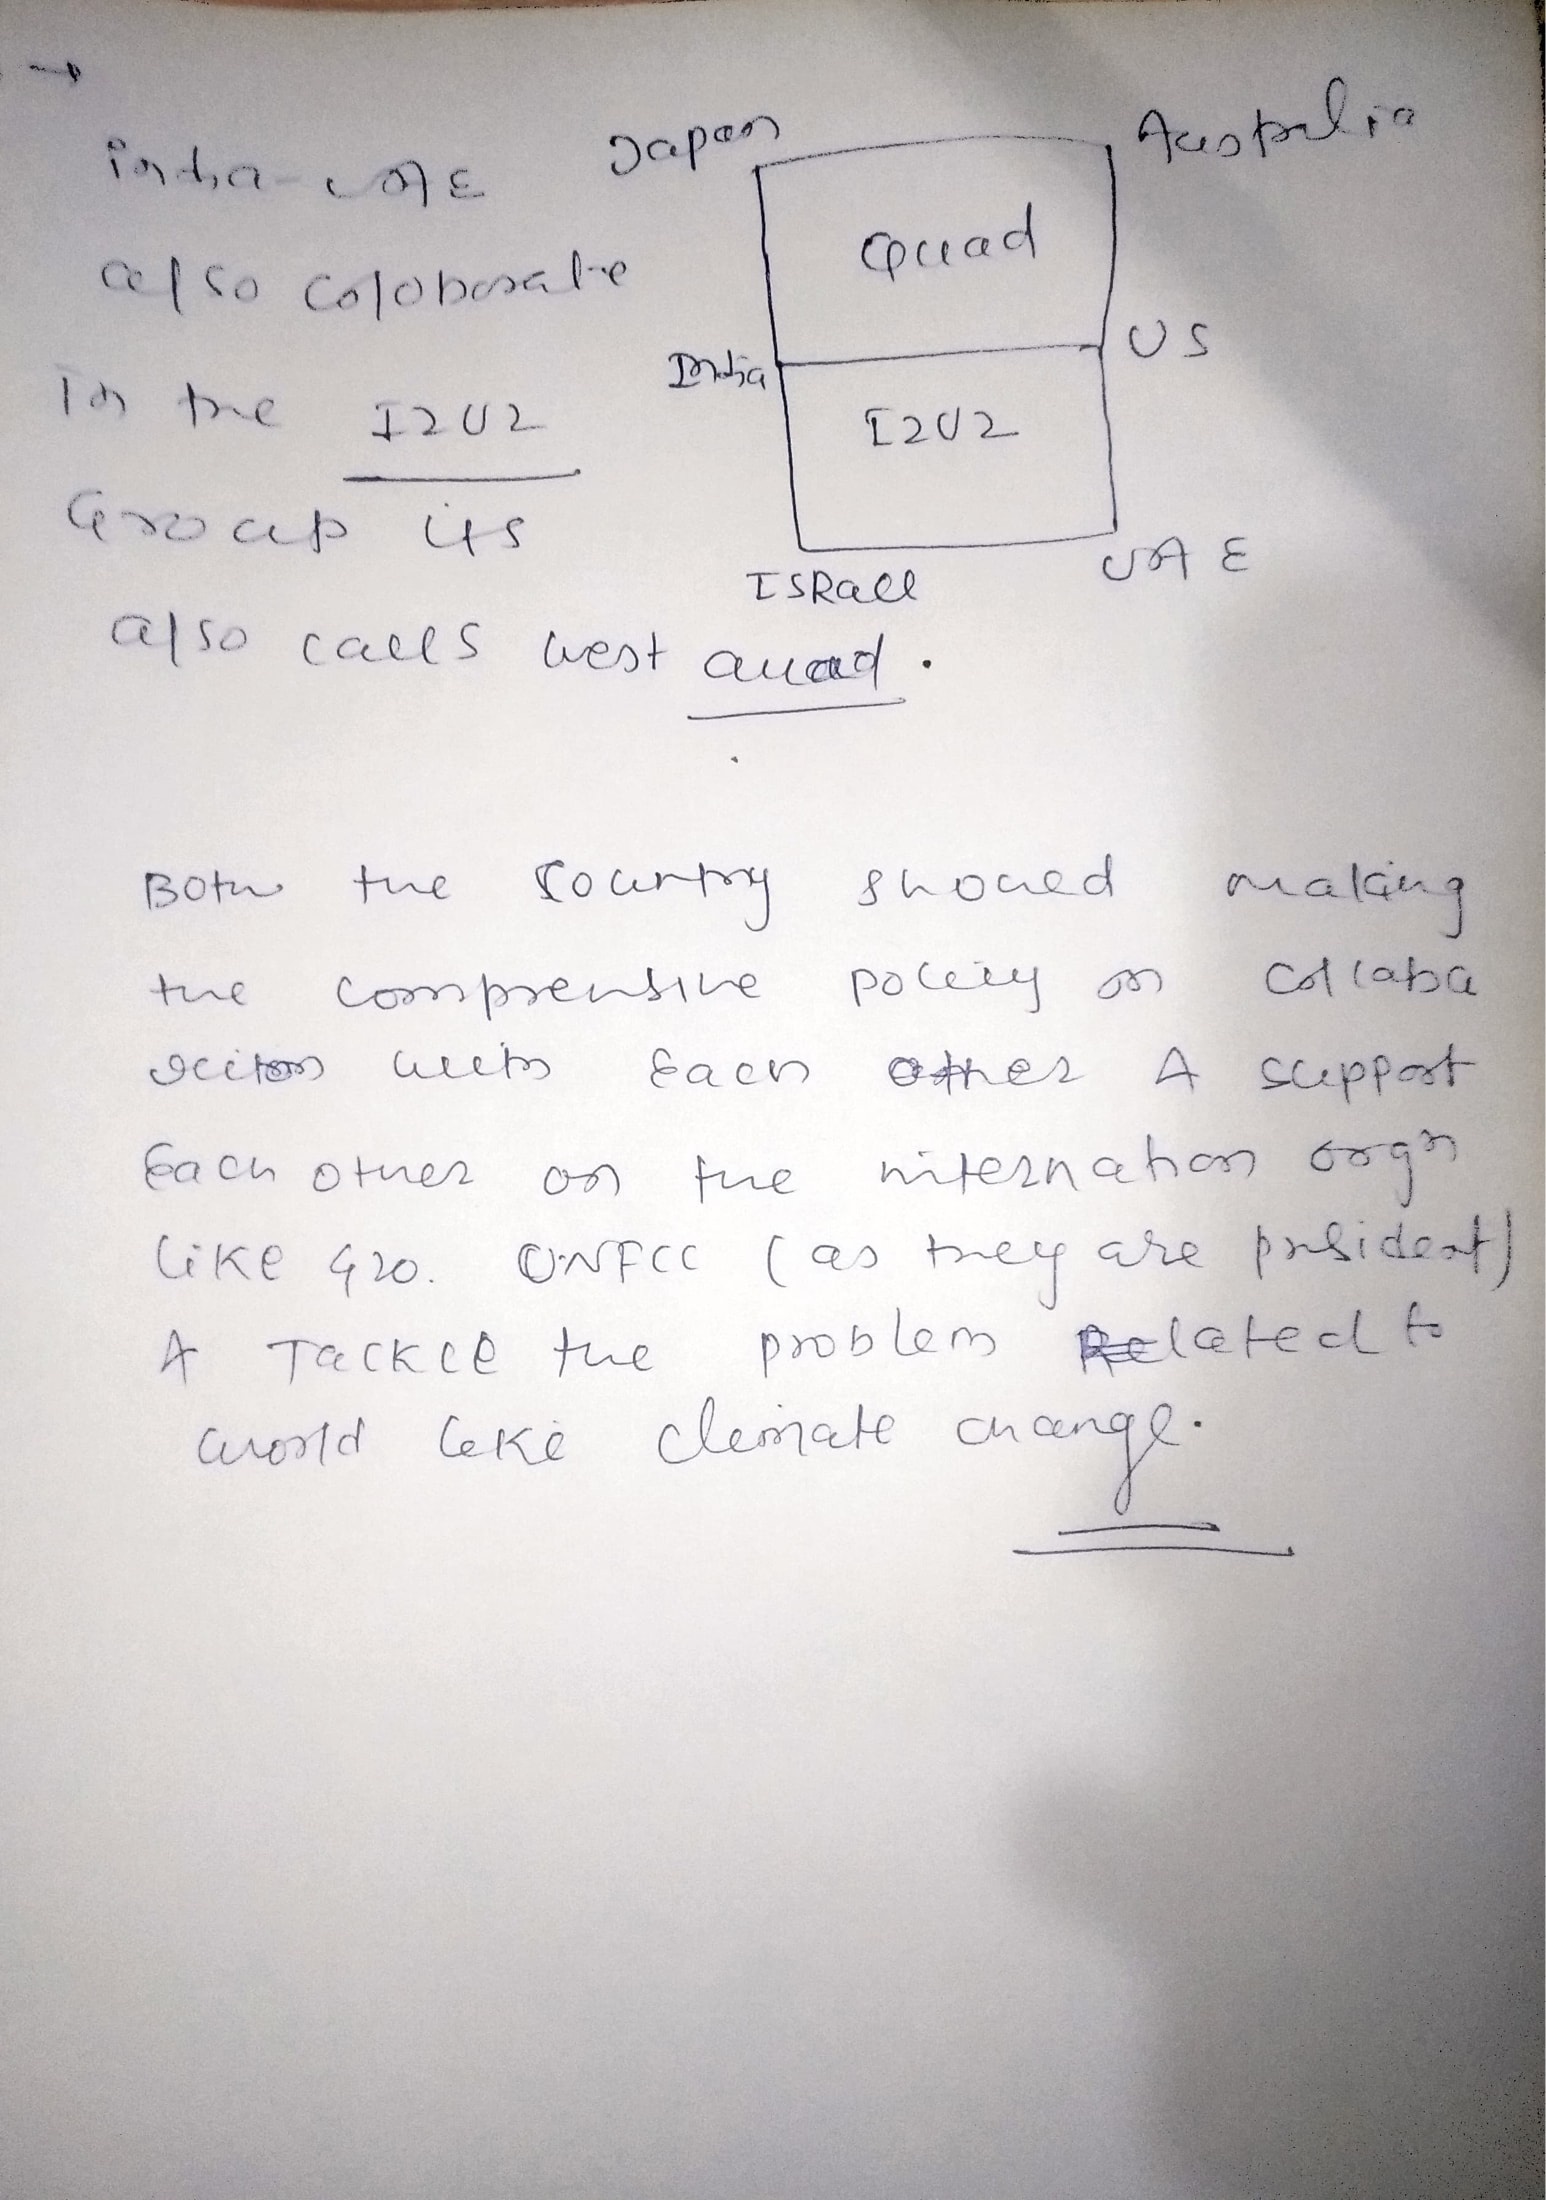 india-UAE
also coloborate
In the I2U2
Group its
also calls west Quad.
Japan
Australia
Quad
India
US
I2U2
ISRael
UAE
Both the Country should making
the comprensive policy on collaba
ration with Each other & support
Each other on the internation orgn
like G20. UNFCC (as they are president)
& Tackle the problem Related to
world like climate change.